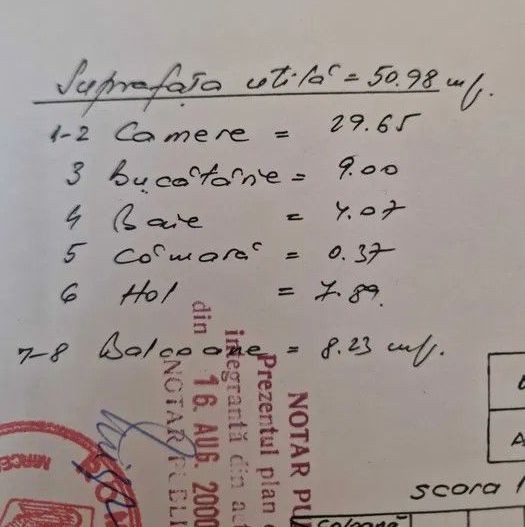 Suprafața utilă = 50.98 mp.
1-2 Camere = 29.65
3 Bucătărie = 9.00
4 Baie = 4.07
5 Cămară = 0.37
6 Hol = 7.89
7-8 Balcoane = 8.23 mp.
NOTAR PU
Prezentul plan
integrantă din act
din 16. AUG. 2000
NOTAR PUBLI
MIRCE
scara 1